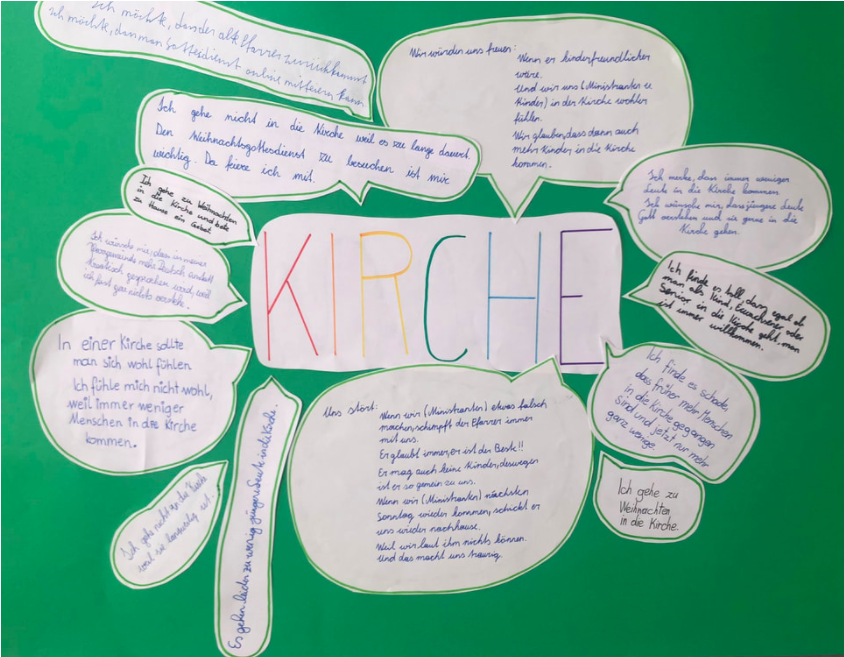 Ich möchte, dass der alte Pfarrer zurückkommt
Ich möchte, dass man Gottesdienst online mitfeiern kann.
Wir würden uns freuen:
Wenn er kinderfreundlicher
wäre.
Und wir uns (Ministranten u
Kinder) in der Kirche wohler
fühlen.
Wir glauben, dass dann auch
mehr Kinder in die Kirche
kommen.
Ich gehe nicht in die Kirche weil es zu lange dauert.
Den Weihnachtsgottesdienst zu besuchen ist mir
wichtig. Da feiere ich mit.
Ich merke, dass immer weniger
Leute in die Kirche kommen.
Ich wünsche mir, dass jüngere Leute
Gott verstehen und sie gerne in die
Kirche gehen.
Ich gehe zu Weihnachten
in die Kirche und bete
zu Hause ein Gebet.
Ich wünsche mir, dass in meiner
Pfarrgemeinde mehr Deutsch anstatt
Kroatisch gesprochen wird, weil
ich fast gar nichts verstehe.
KIRCHE
Ich finde es toll, dass egal ob
man als Kind, Erwachsener oder
Senior in die Kirche geht, man
ist immer willkommen.
In einer Kirche sollte
man sich wohl fühlen
Ich fühle mich nicht wohl,
weil immer weniger
Menschen in die Kirche
kommen.
Ich finde es schade,
dass früher mehr Menschen
in die Kirche gegangen
sind und jetzt nur mehr
ganz wenige.
Uns stört:
Wenn wir (Ministranten) etwas falsch
machen, schimpft der Pfarrer immer
mit uns.
Er glaubt immer, er ist der Beste!!
Er mag auch keine Kinder, deswegen
ist er so gemein zu uns.
Wenn wir (Ministranten) nächsten
Sonntag wieder kommen, schickt er
uns wieder nachhause.
Weil wir laut ihm nichts können.
Und das macht uns traurig.
Ich gehe nicht in die Kirche
weil sie langweilig ist.
Es gehen leider zu wenig jüngere Leute in die Kirche.
Ich gehe zu
Weihnachten
in die Kirche.